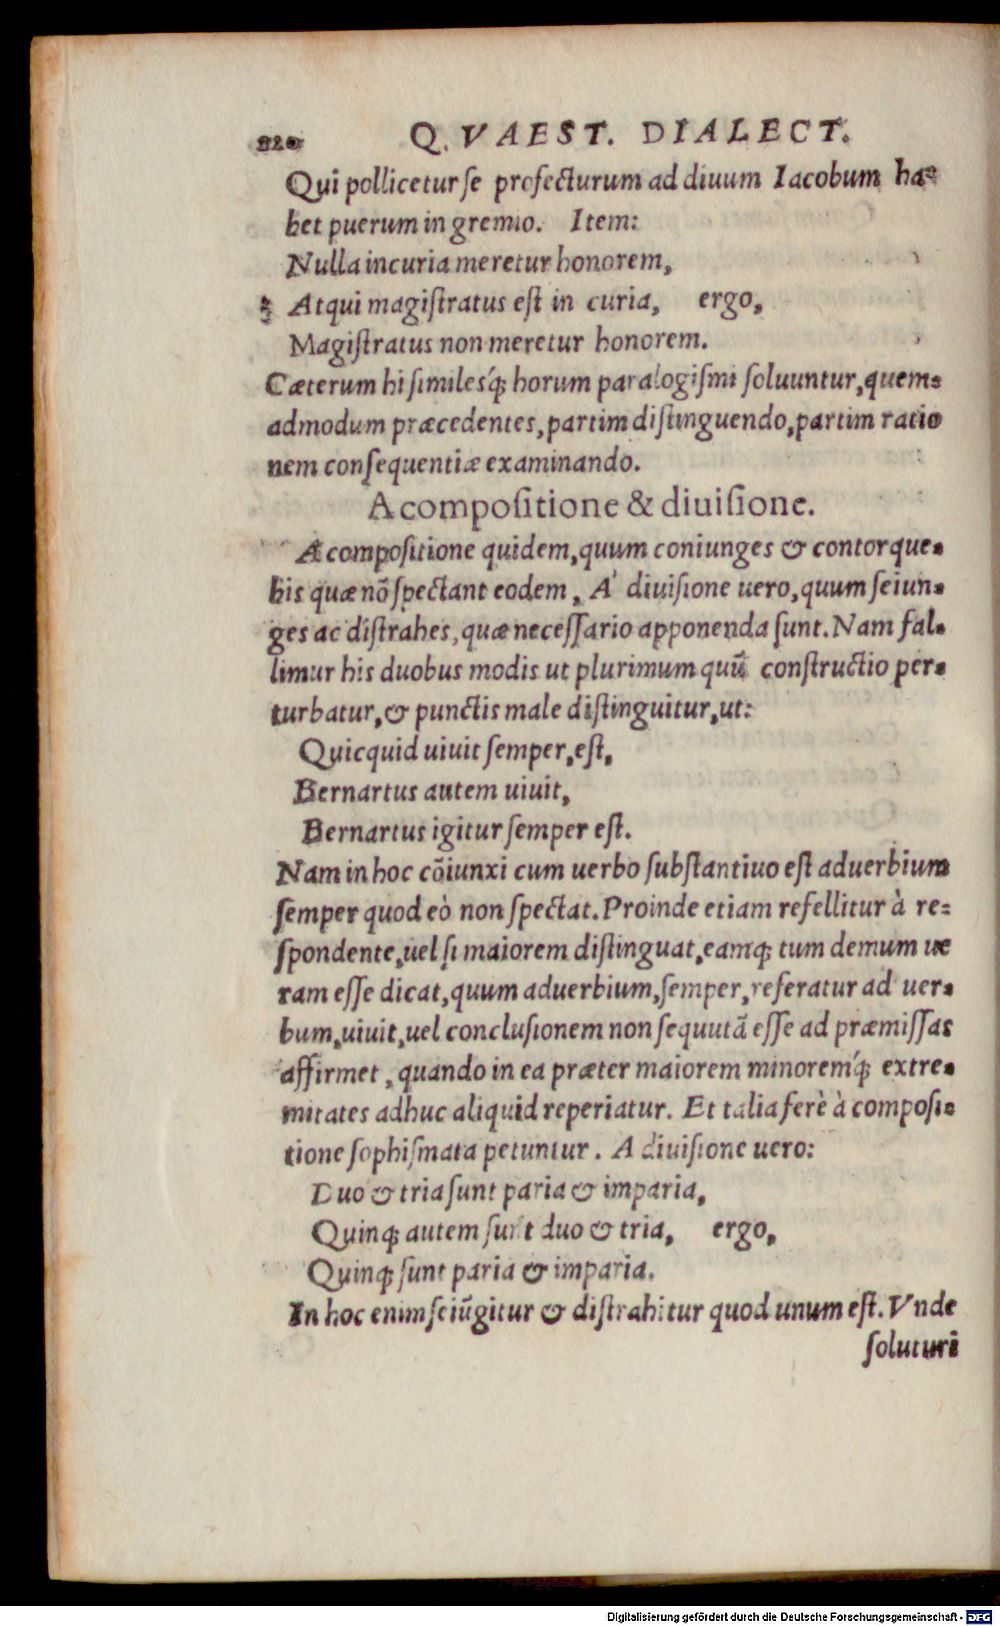 220 QVAEST. DIALECT.
Qui pollicetur se profecturum ad diuum Iacobum ha-
bet puerum in gremio. Item:
Nulla incuria meretur honorem,
Atqui magiſtratus eſt in curia, ergo,
Magiſtratus non meretur honorem.
Cæterum hi ſimilesq́ꝫ horum paralogiſmi ſoluuntur, quem-
admodum præcedentes, partim diſtinguendo, partim ratio
nem conſequentiæ examinando.
A compoſitione & diuiſione.
A compoſitione quidem, quum coniunges & contorque-
bis quæ nõ ſpectant eodem, A' diuiſione uero, quum ſeiun-
ges ac diſtrahes, quæ neceſſario apponenda ſunt. Nam fal-
limur his duobus modis ut plurimum quũ conſtructio per-
turbatur, & punctis male diſtinguitur, ut:
Quicquid uiuit ſemper, eſt,
Bernartus autem uiuit,
Bernartus igitur ſemper eſt.
Nam in hoc cõiunxi cum uerbo ſubſtantiuo eſt aduerbium
ſemper quod eò non ſpectat. Proinde etiam refellitur à re-
ſpondente, uel ſi maiorem diſtinguat, eamqꝫ tum demum ue
ram eſſe dicat, quum aduerbium, ſemper, referatur ad uer-
bum, uiuit, uel concluſionem non ſequutã eſſe ad præmiſſas
affirmet, quando in ea præter maiorem minoremq́ꝫ extre-
mitates adhuc aliquid reperiatur. Et talia ferè à compoſi-
tione ſophiſmata petuntur. A diuiſione uero:
Duo & tria ſunt paria & imparia,
Quinqꝫ autem ſunt duo & tria, ergo,
Quinqꝫ ſunt paria & imparia.
In hoc enim ſeiũgitur & diſtrahitur quod unum eſt. Vnde
ſoluturi
Digitalisierung gefördert durch die Deutsche Forschungsgemeinschaft - DFG